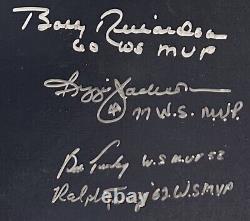 Bobby Richardson
60 WS MVP
Reggie Jackson
44
77 W.S. M.V.P.
Bob Turley W.S. M.V.P 58
Ralph Terry '62 W.S MVP
gavelbids.com